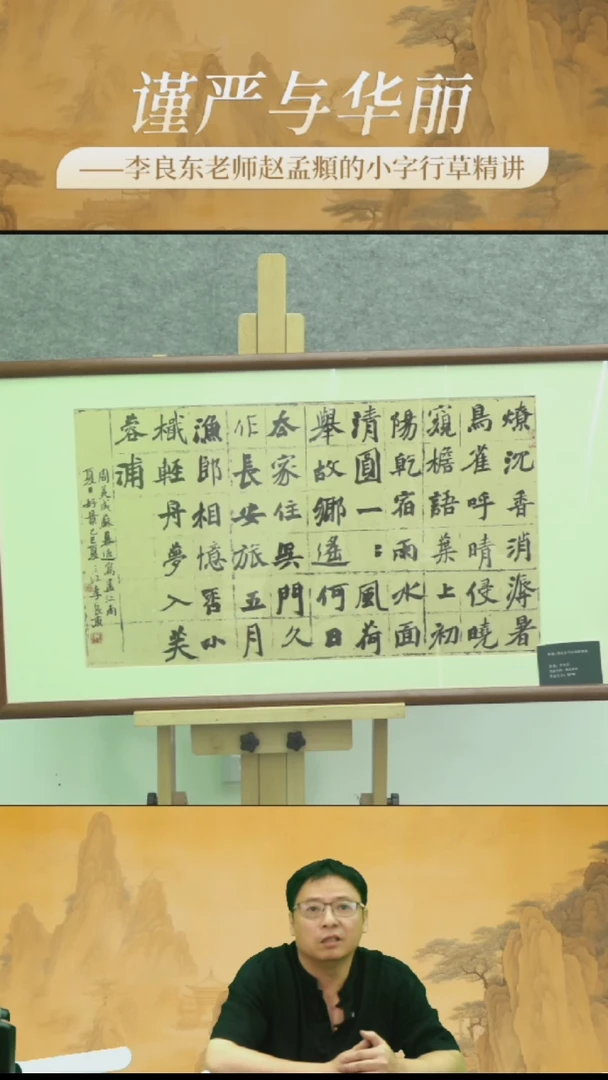 谨严与华丽
——李良东老师赵孟頫的小字行草精讲
燎沈香消溽暑
鳥雀呼晴侵曉
窺檐語葉上初
陽乾宿雨水面
清圓一〻風荷
舉故鄉遙何日
去家住吳門久
作長安旅五月
漁郎相憶否小
檝輕舟夢入芙
蓉浦
周美成蘇幕遮寫盡江南
夏日好景乙巳夏